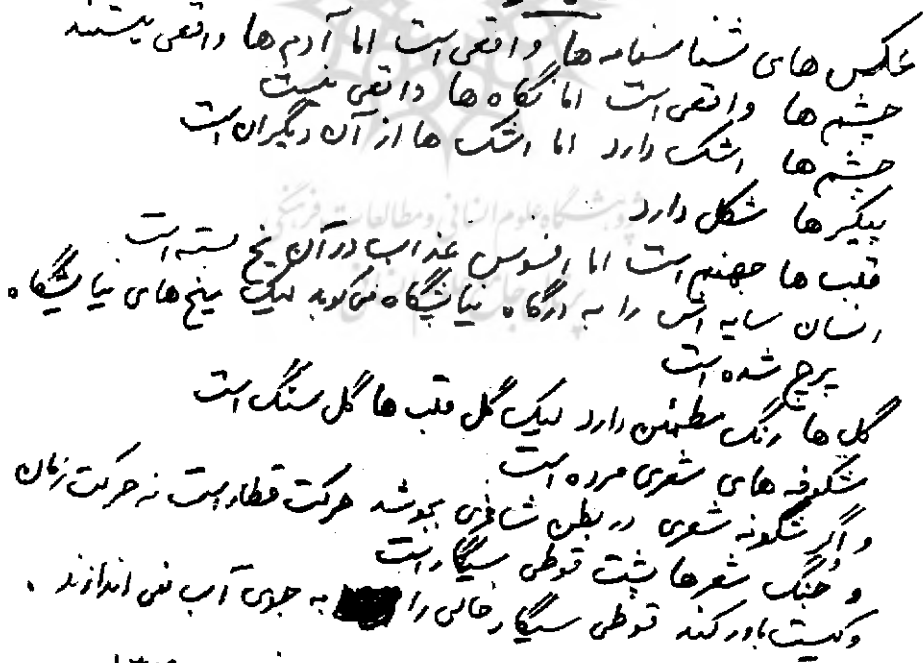 عکس های شناسنامه ها واقعی است اما آدم ها واقعی نیستند
چشم ها واقعی است اما نگاه ها واقعی نیست
چشم ها اشک دارد اما اشک ها از آن دیگران است
پیکرها شکل دارد
پژوهشگاه علوم انسانی و مطالعات فرهنگی
قلب ها جهنم است اما افسوس عذاب در آن یخ بسته است
انسان سایه اش را به درگاه نیایشگاه می کوبد لیک میخ های نیایشگاه
پرچ شده است
گل ها رنگ مطمئن دارد لیک گل قلب ها گل سنگ است
شکوفه های شعری مرده است
و اگر شکوفه شعری در بطن شاعری بجوشد حرکت قطار است نه حرکت زمان
و جنگ شعرها پشت قوطی سیگار است
و کیست باور کند قوطی سیگار خالی را به جوی آب نمی اندازند .